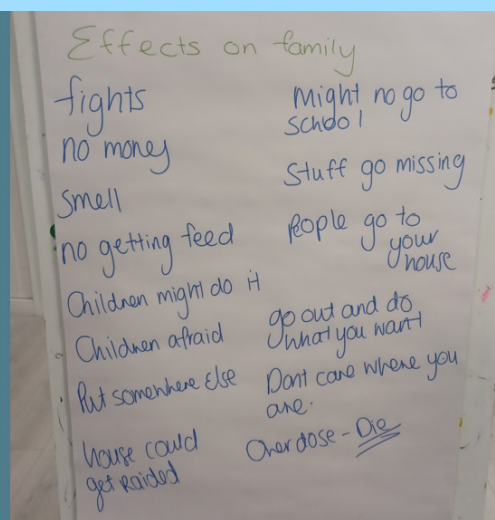 Effects on family
fights
no money
smell
no getting feed
Children might do it
Children afraid
Put somewhere else
house could
get raided
Might no go to
school
Stuff go missing
People go to
your
house
go out and do
what you want
Dont care where you
are.
Overdose - Die